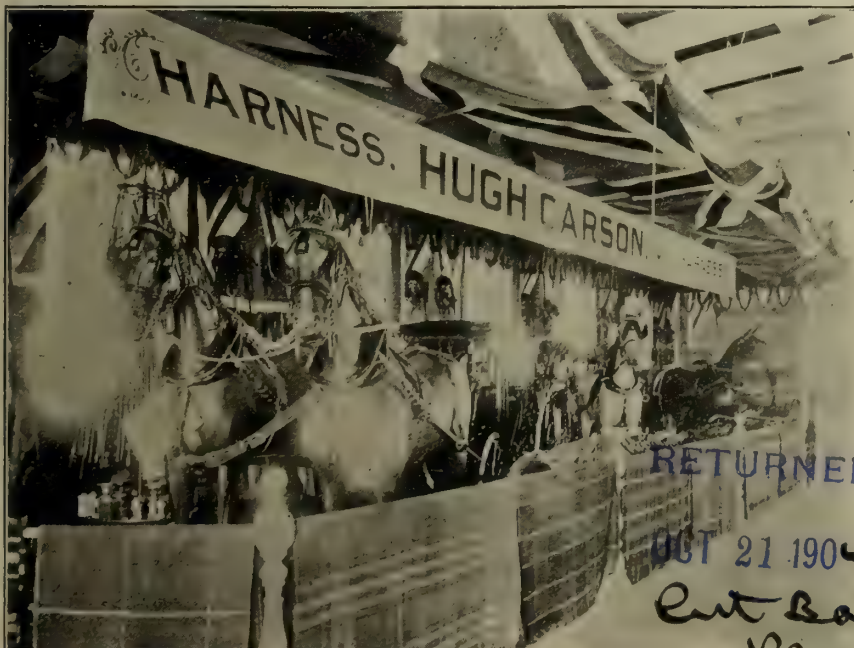 HARNESS. HUGH CARSON.
RETURNE
OCT 21 190
Cut